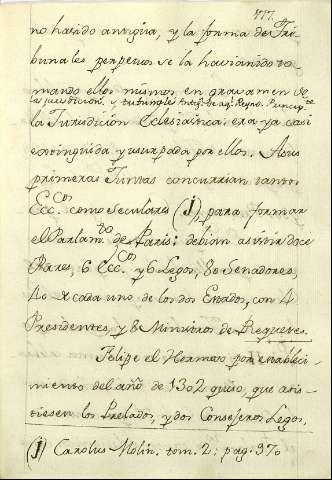 777.
no ha sido antigua, y la forma de Tri-
bunales perpetuos se la havian ido to-
mando ellos mismos en gravamen de
la Jurisdicción
la Jurisdicción Eclesiastica: era ya casi
extinguida y usurpada por ellos. A sus
primeras Juntas concurrian tantos
Ecc.cos como seculares (J), para formar
el Parlam.to de Paris: debian asistir doce
Pares, 6 Ecc.cos y 6 Legos, 80 Senadores,
40 x cada uno de los dos Estados, con 4
Presidentes, y 8 Ministros de Requetes.
Felipe el Hermoso por estableci-
miento del año de 1302 quiso, que asis-
tiesen los Prelados, y dos Consejeros Legos,
(J) Carolus Molin. tom. 2: pag. 970